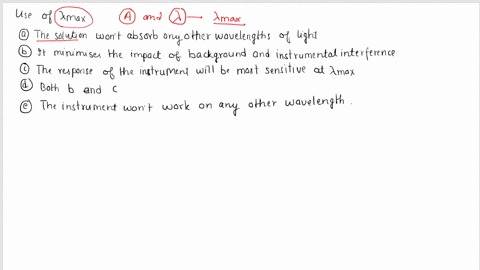 Use of λmax A and λ → λmax
ⓐ The solution won't absorb any other wavelengths of light
ⓑ It minimises the impact of background and instrumental interference
ⓒ The response of the instrument will be most sensitive at λmax
ⓓ Both b and c
ⓔ The instrument won't work on any other wavelength.